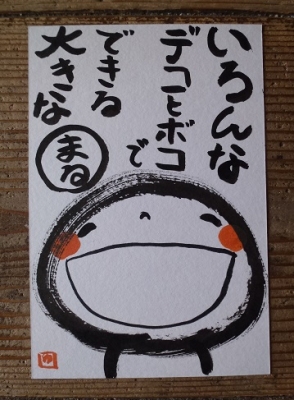 いろんな
デコとボコで
できる
大きな
まる
ゆ